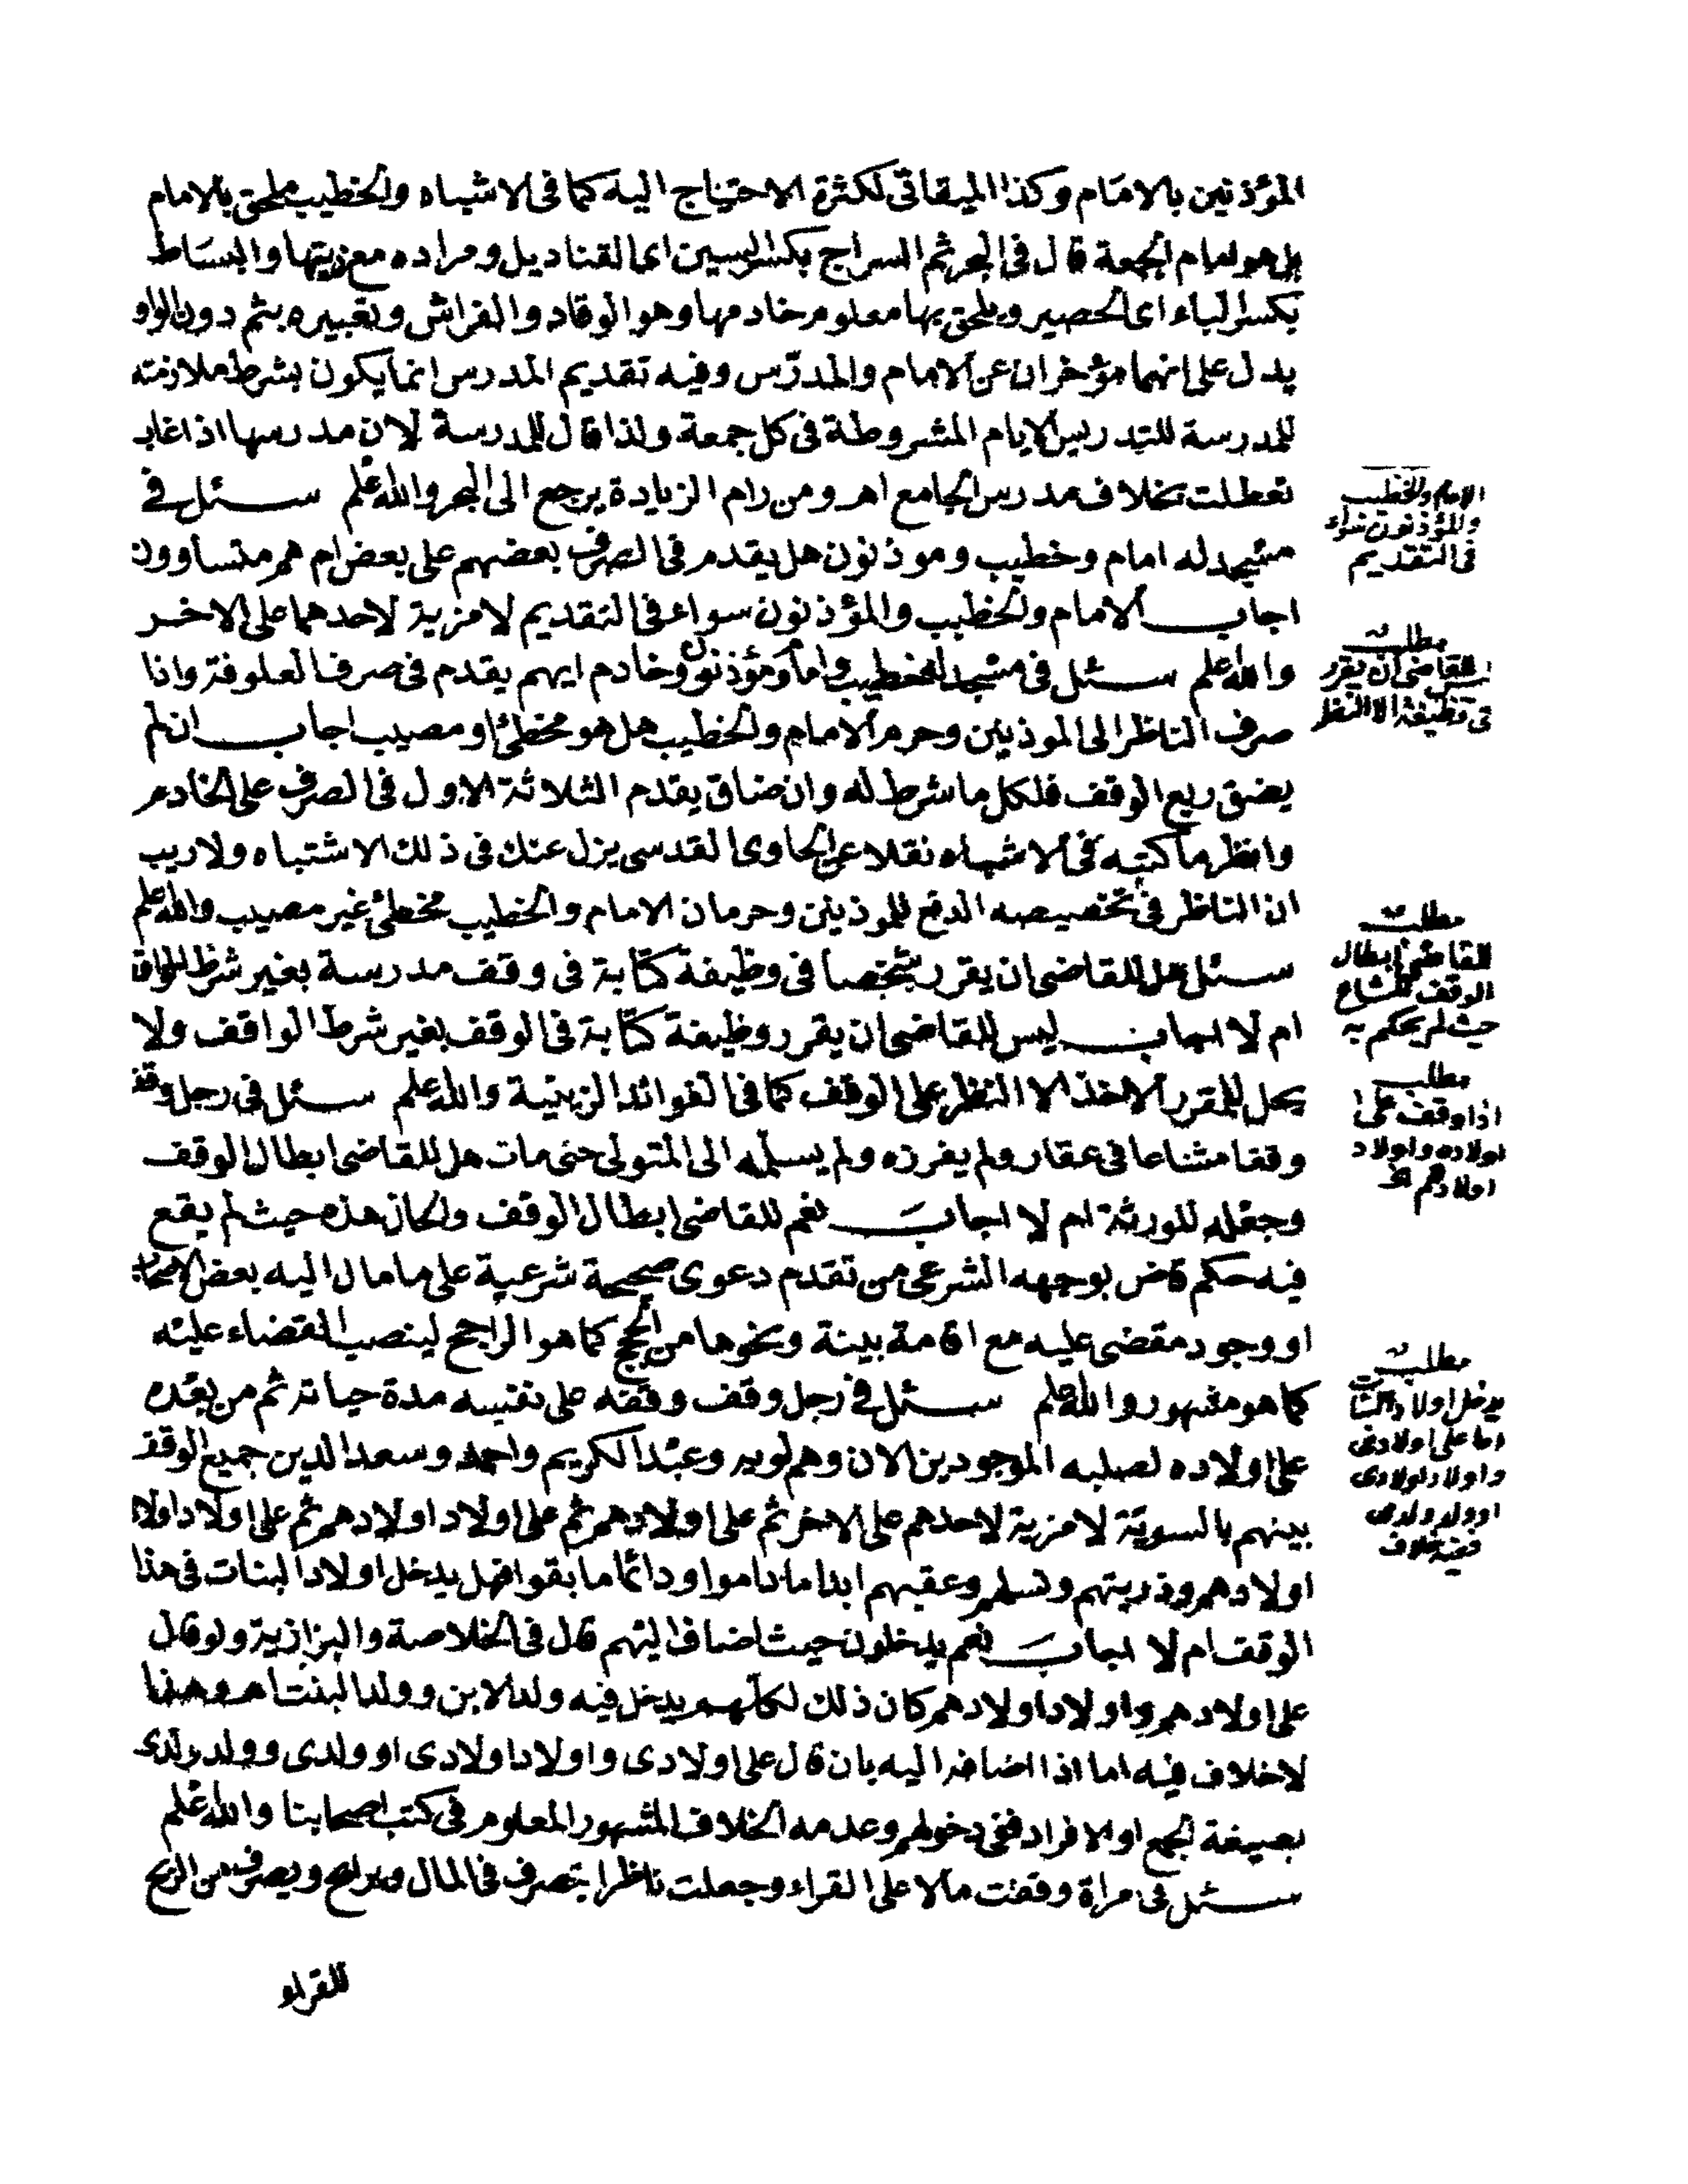 المؤذنين بالامام وكذا الميقاتى لكثرة الاحتياج اليه كما فى الاشباه والخطيب ملحق بالامام
بل هو امام الجمعة قال فى البحر ثم السراج بكسر السين اى القناديل ومراده مع زيتها والبساط
بكسر الباء اى الحصير ويلحق بها معلوم خادمها وهو الوقاد والفراش وتعبيره بثم دون الواو
يدل على انهما مؤخران عن الامام والمدرّس وفيه تقديم المدرس انما يكون بشرط ملازمته
للمدرسة للتدريس الايام المشروطة فى كل جمعة ولذا قال للمدرسة لان مدرسها اذا غاب
تعطلت بخلاف مدرس الجامع اهـ ومن رام الزيادة يرجع الى البحر والله اعلم سئل فى
مسجد له امام وخطيب وموذنون هل يقدم فى الصرف بعضهم على بعض ام هم متساوون
اجاب الامام والخطيب والمؤذنون سواء فى التقديم لا مزية لاحدهما على الاخر
والله اعلم سئل فى مسجد له خطيب وامام ومؤذنون وخادم ايهم يقدم فى صرف العلوفة واذا
صرف الناظر الى الموذنين وحرم الامام والخطيب هل هو مخطئ او مصيب اجاب ان لم
يضق ريع الوقف فلكل ما شرط له وان ضاق يقدم الثلاثة الاول فى الصرف على الخادم
وانظر ما كتبه فى الاشباه نقلا عن الحاوى القدسى يزل عنك فى ذلك الاشتباه ولا ريب
ان الناظر فى تخصيصه الدفع للموذنين وحرمان الامام والخطيب مخطئ غير مصيب والله اعلم
سئل هل للقاضى ان يقرر شخصا فى وظيفة كتابة فى وقف مدرسة بغير شرط الواقف
ام لا اجاب ليس للقاضى ان يقرر وظيفة كتابة فى الوقف بغير شرط الواقف ولا
يحل للمقرر الاخذ الا النظر على الوقف كما فى الفوائد الزينية والله اعلم سئل فى رجل وقف
وقفا مشاعا فى عقار ولم يفرزه ولم يسلمه الى المتولى حتى مات هل للقاضى ابطال الوقف
وجعله للورثة ام لا اجاب نعم للقاضى ابطال الوقف والحال هذه حيث لم يقع
فيه حكم قاض بوجهه الشرعى من تقدم دعوى صحيحة شرعية على ما مال اليه بعض الاصحاب
او وجود مقضى عليه مع اقامة بينة ونحوها من الحجج كما هو الراجح لينصب القضاء عليه
كما هو مشهور والله اعلم سئل فى رجل وقف وقفه على نفسه مدة حياته ثم من بعده
على اولاده لصلبه الموجودين الان وهم وعبد الكريم واحمد وسعد الدين جميع الوقف
بينهم بالسوية لا مزية لاحدهم على الاخر ثم على اولادهم ثم على اولاد اولادهم ثم على اولاد اولاد
اولادهم وذريتهم ونسلهم وعقبهم ابدا ما داموا ودائما ما بقوا فهل يدخل اولاد البنات فى هذا
الوقف ام لا اجاب نعم يدخلون حيث اضاف اليهم قال فى الخلاصة والبزازية ولو قال
على اولادهم واولاد اولادهم كان ذلك لكلهم يدخل فيه ولد الابن وولد البنت اهـ وهذا
لا خلاف فيه اما اذا اضافه اليه بان قال على اولادى واولاد اولادى او ولدى وولد ولدى
بصيغة الجمع او الافراد ففى دخولهم وعدمه الخلاف المشهور المعلوم فى كتب اصحابنا والله اعلم
سئل فى مراة وقفت مالا على القراء وجعلت ناظرا يتصرف فى المال ويرابح ويصرف من الربح
للقراء
الامام والخطيب
والمؤذنون سواء
فى التقديم
مطلب
ليس للقاضى ان يقرر
فى وظيفة الا النظر
مطلب
للقاضى ابطال
الوقف المشاع
حيث لم يحكم به
مطلب
اذا وقف على
اولاده واولاد
اولادهم الخ
مطلب
يدخل اولاد البنات
اما على اولادى
واولاد اولادى
او ولد ولدى
ففيه خلاف